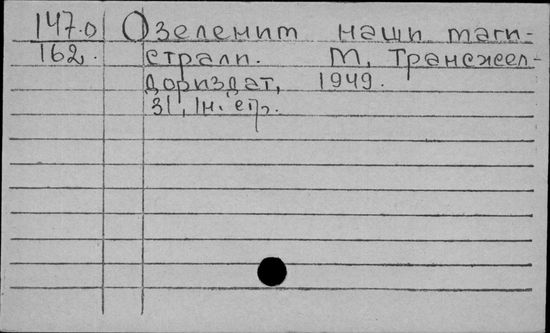 147.0 Озеленит наши маги-
162. страли. М, Трансжел-
дориздат, 1949.
31, 1н. стр.